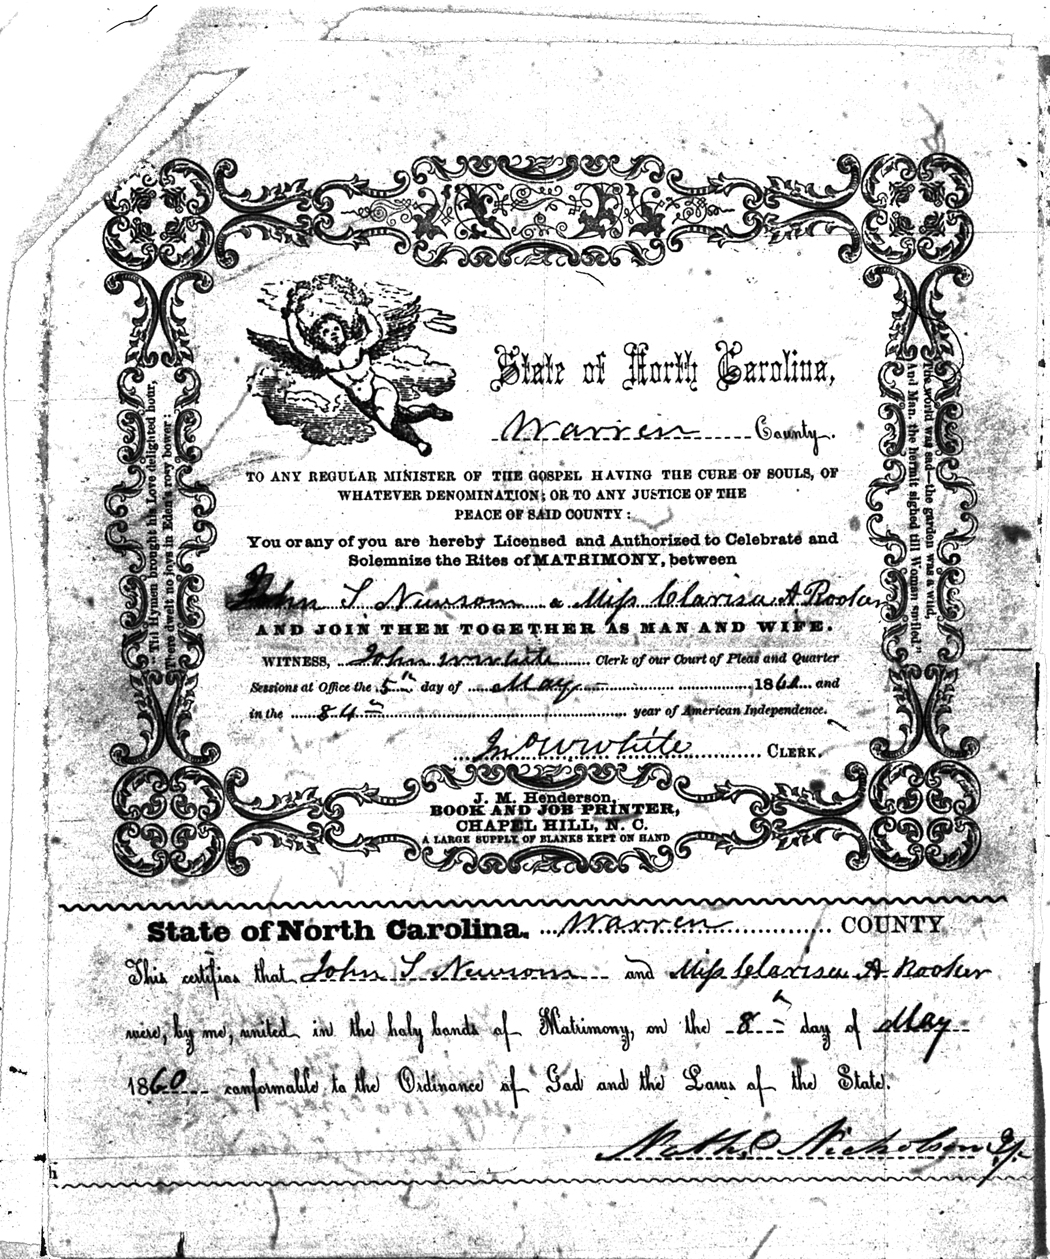 State of North Carolina,
Warren County.
TO ANY REGULAR MINISTER OF THE GOSPEL HAVING THE CURE OF SOULS, OF
WHATEVER DENOMINATION; OR TO ANY JUSTICE OF THE
PEACE OF SAID COUNTY:
You or any of you are hereby Licensed and Authorized to Celebrate and
Solemnize the Rites of MATRIMONY, between
John S Newsom & Miss Clarisa A Rooker
AND JOIN THEM TOGETHER AS MAN AND WIFE.
WITNESS, John W White Clerk of our Court of Pleas and Quarter
Sessions at Office the 5th day of May 1860 and
in the 84th year of American Independence.
Jno W White CLERK.
"Till Hymen brought his Love delighted hour,
There dwelt no joys in Eden's rosey bower:
The world was sad—the garden was a wild,
And Man, the hermit sighed till Woman smiled"
J. M. Henderson,
BOOK AND JOB PRINTER,
CHAPEL HILL, N. C.
A LARGE SUPPLY OF BLANKS KEPT ON HAND
State of North Carolina. Warren COUNTY
This certifies that John S Newsom and Miss Clarisa A Rooker
were, by me, united in the holy bonds of Matrimony, on the 8th day of May
1860 conformable to the Ordinance of God and the Laws of the State.
Nath Nicholson Jp.